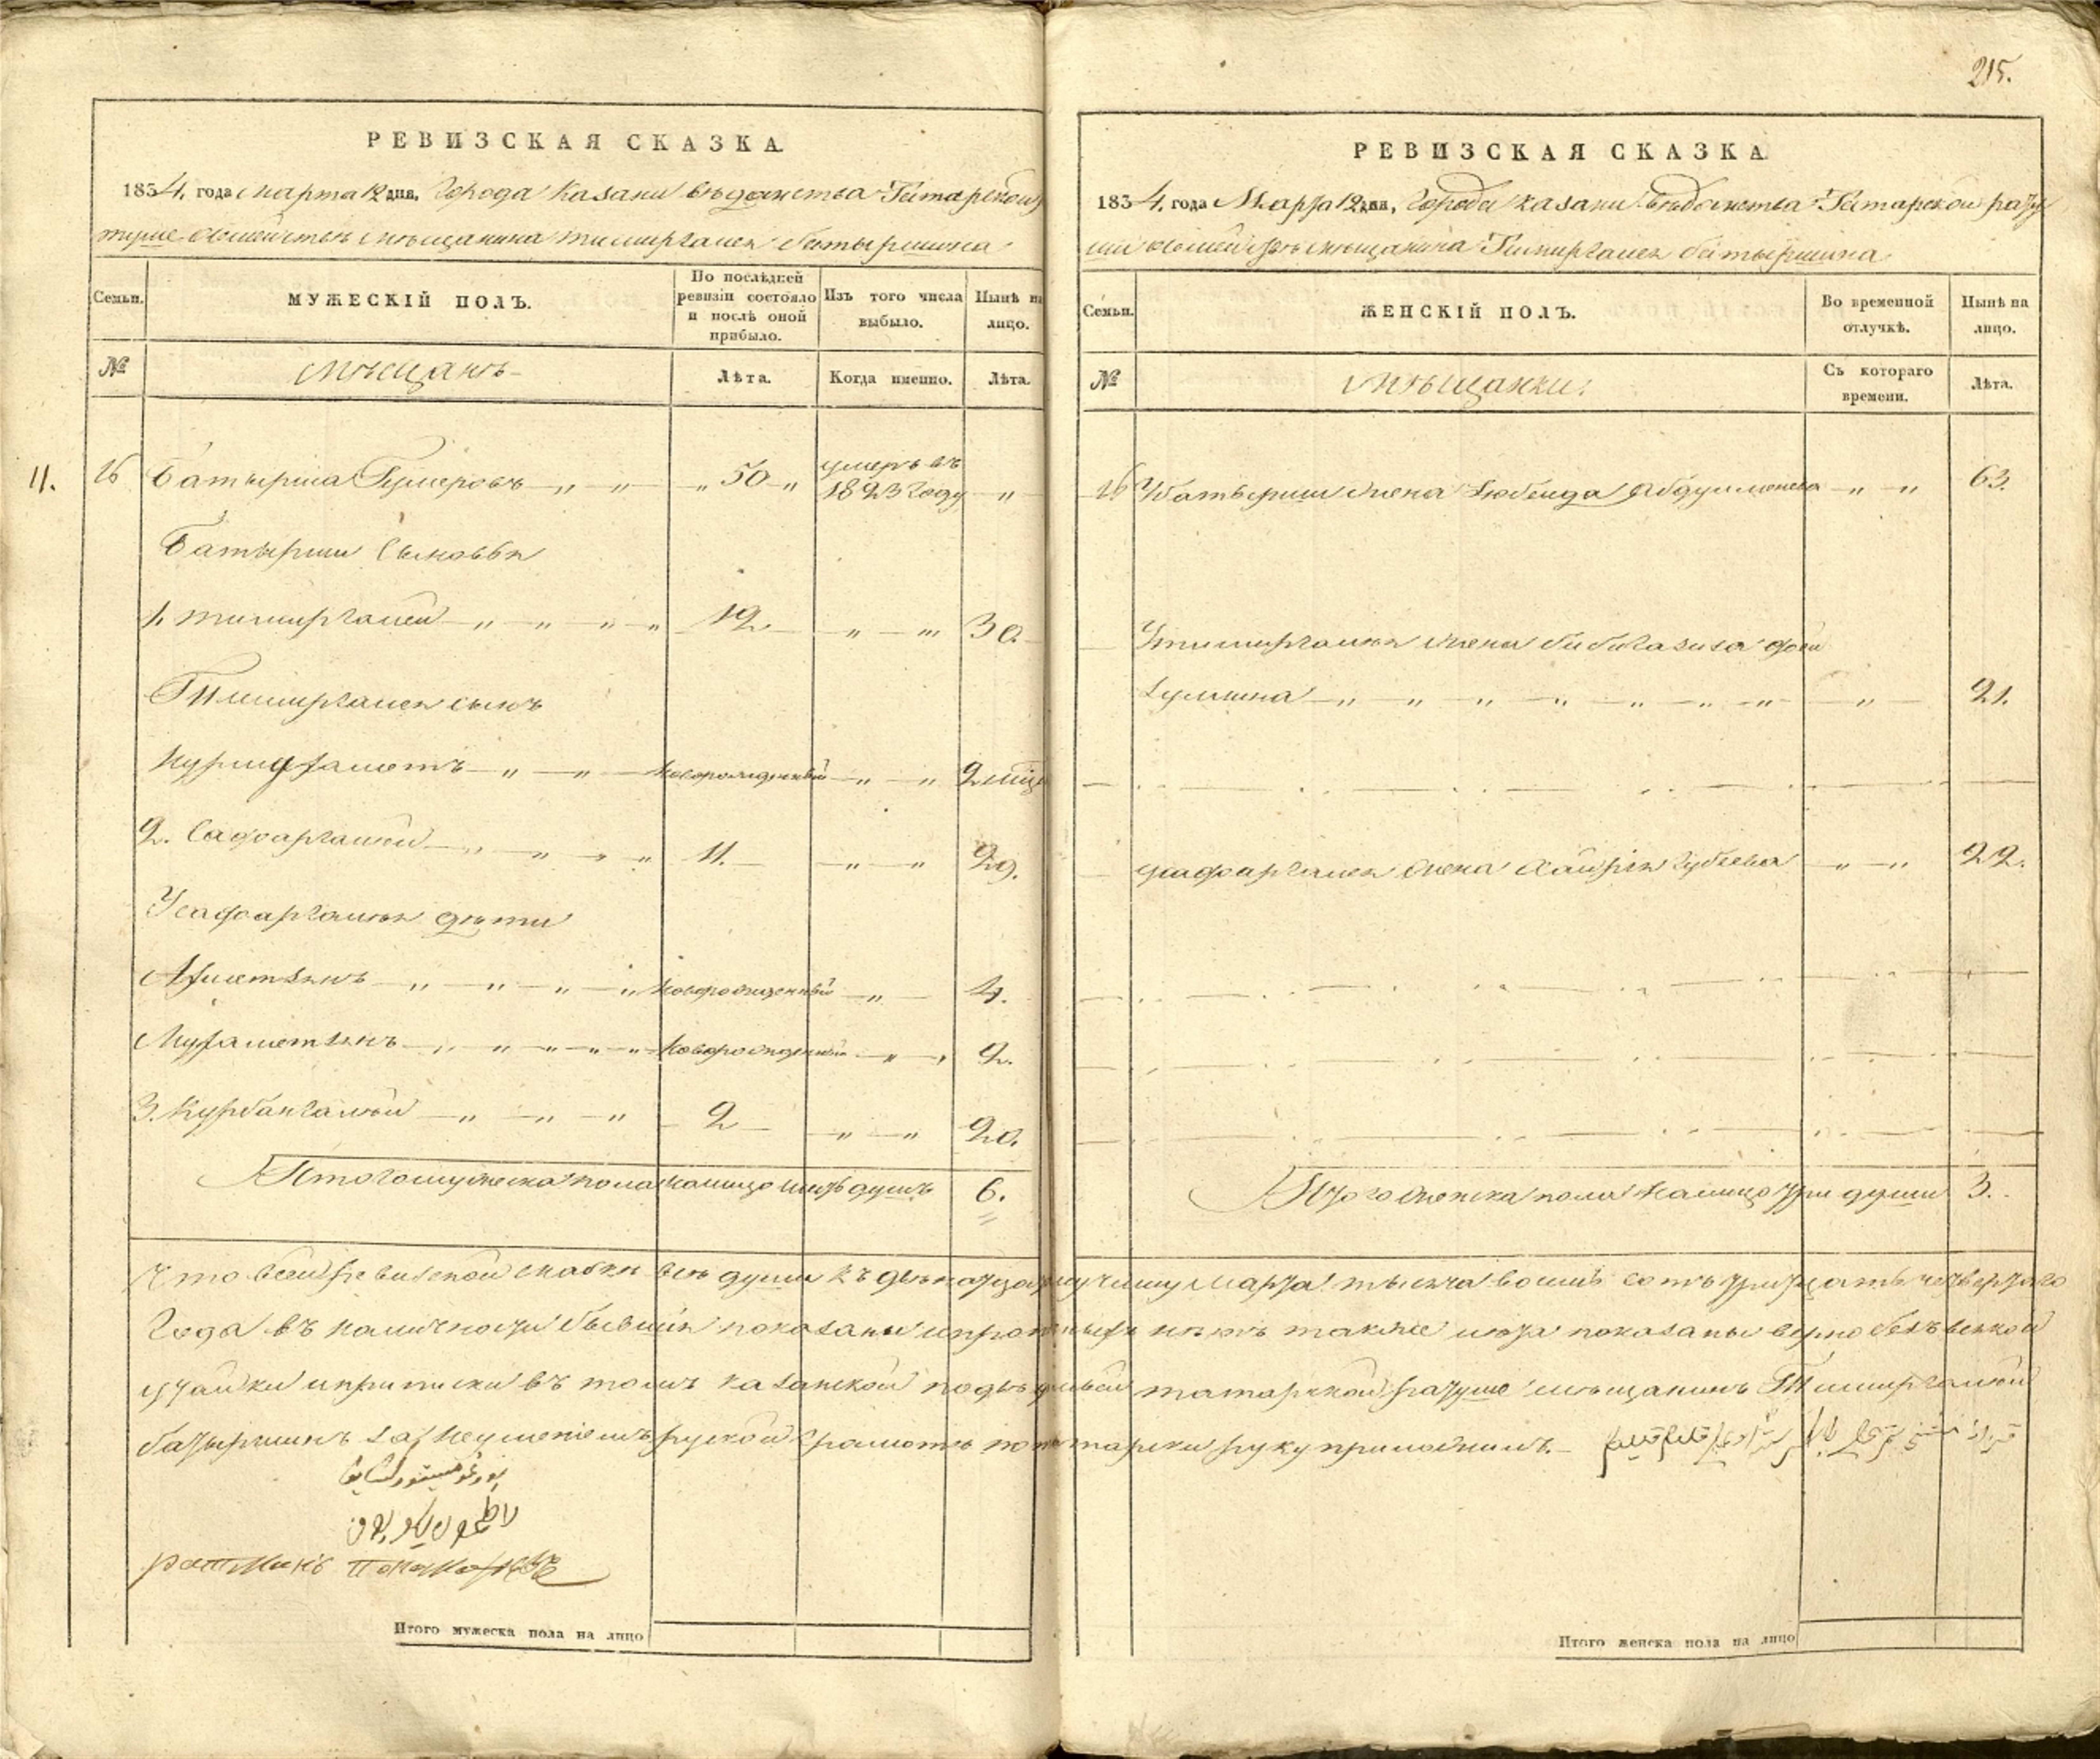 215.
РЕВИЗСКАЯ СКАЗКА
1834. года марта 12 дня, Города Казани вѣдомства Татарской
ратуши семейства мѣщанина Тимиргалея Батыршина
Семьи.
МУЖЕСКІЙ ПОЛЪ.
По послѣдней ревизіи состояло и послѣ оной прибыло.
Изъ того числа выбыло.
Нынѣ на лицо.
№
мѣщанъ
Лѣта.
Когда именно.
Лѣта.
11.
26 Батырша Гумеровъ „ „ „ 50 „ умеръ въ 1823 году „
Батырши сыновья
1. Тимиргалей „ „ „ „ 12 „ „ 30.
Тимиргалея сынъ
Нурмухаметъ „ „ новорожденный „ „ 2 мѣся
2. Сафаргалей „ „ „ „ 11. „ „ 29.
У Сафаргалея дѣти
Ахметзянъ „ „ „ „ новорожденный „ 4.
Мухаметзянъ „ „ „ „ „ новорожденный „ „ 2.
3. Курбангалей „ „ „ 2 „ „ 20.
Итого мужеска пола на лицо шесть душъ 6.
РЕВИЗСКАЯ СКАЗКА
1834. года Марта 12 дня, Города Казани вѣдомства Татарской рату
ши семейства мѣщанина Тимиргалея Батыршина
Семьи.
ЖЕНСКІЙ ПОЛЪ.
Во временной отлучкѣ.
Нынѣ на лицо.
№
мѣщанки.
Съ котораго времени.
Лѣта.
26 У Батырши жена Зюбейда „ „ 63.
У Тимиргалея жена Бибигазиза
„ „ „ „ „ „ „ „ 21.
У Сафаргалея жена „ „ 22.
Итого женска пола на лицо три души 3.
Что въ сей ревизской сказкѣ всѣ души къ двѣнатцатому числу Марта тысяча восемь сотъ тритцать четвертаго
года въ наличности бывшія показаны и прописныхъ нѣтъ также лѣта показаны вѣрно безъ всякой
утайки и приписки въ томъ Казанской татарской ратуши мѣщанинъ Тимиргалей
Батыршинъ за неумѣніемъ руской грамотѣ по татарски руку приложилъ.
ратманъ
Итого мужеска пола на лицо
Итого женска пола на лицо